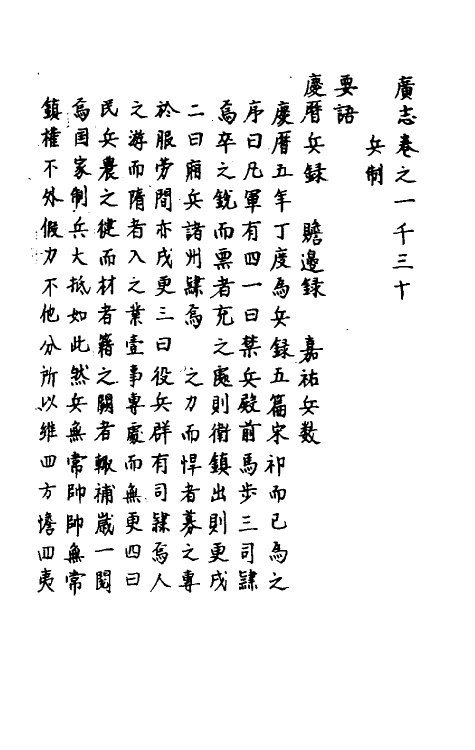 廣志卷之一千三十
兵制
要語
慶曆兵録　贍邊録　嘉祐兵数
慶曆五年丁度為兵録五篇宋祁而已為之
序曰凡軍有四一曰禁兵殿前馬歩三司隸
焉卒之銳而票者充之處則衛鎮出則更戍
二曰廂兵諸州隸焉　之力而悍者募之專
於服劳間亦戍更三曰役兵群有司隸焉人
之游而隋者入之業壹事專處而無更四曰
民兵農之健而材者籍之闕者輒補歲一閱
焉国家制兵大抵如此然兵無常帥帥無常
鎮權不外假力不他分所以維四方憺四夷